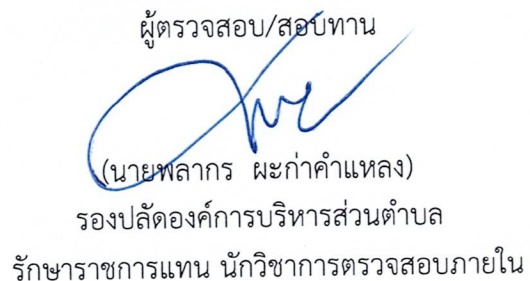 ผู้ตรวจสอบ/สอบทาน
(นายพลากร ผะก่าคำแหลง)
รองปลัดองค์การบริหารส่วนตำบล
รักษาราชการแทน นักวิชาการตรวจสอบภายใน